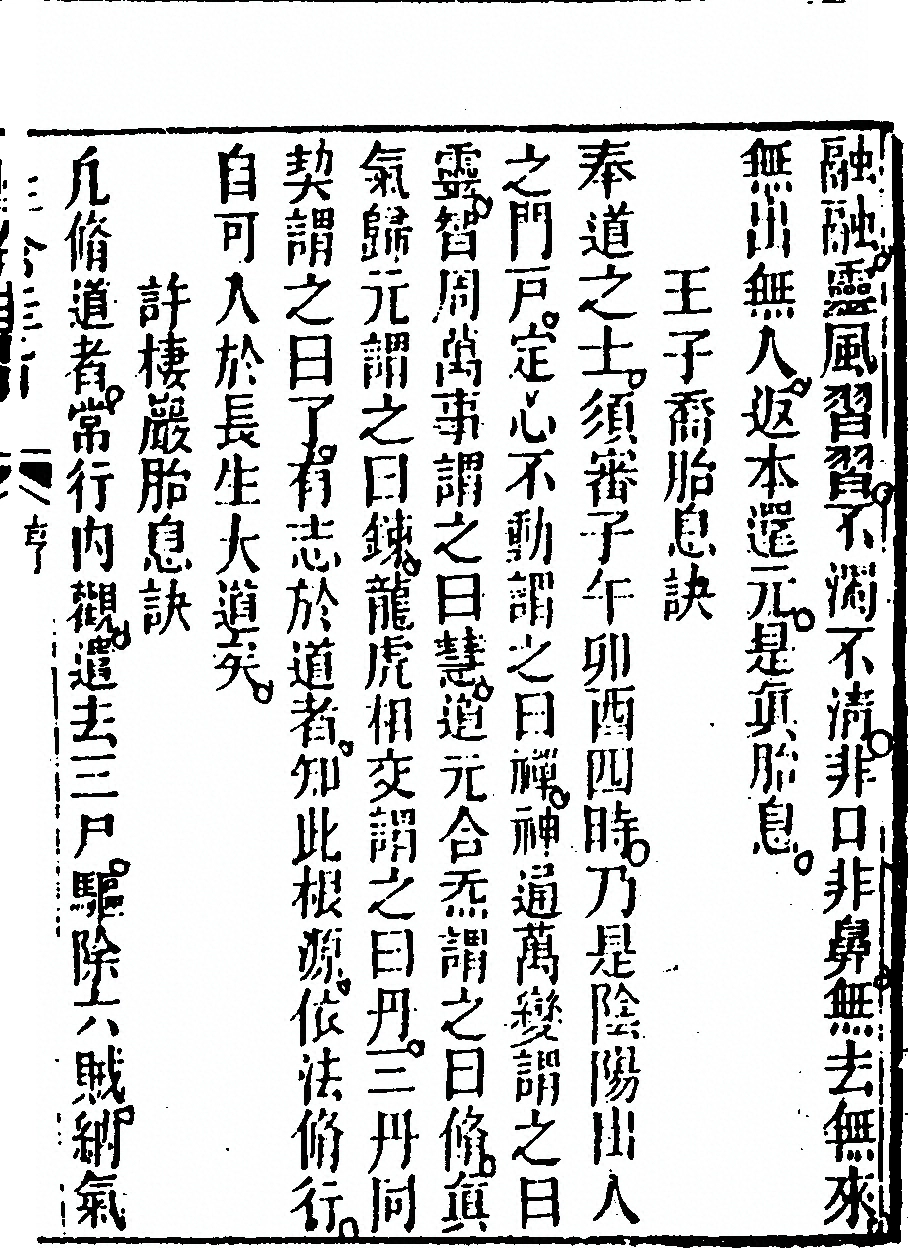 融融靈風習習不濁不清非口非鼻無去無來
無出無入返本還元是真胎息
王子喬胎息訣
奉道之士須審子午卯酉四時乃是陰陽出入
之門戶定心不動謂之曰禪神通萬變謂之曰
靈智周萬事謂之曰慧道元合炁謂之曰脩真
氣歸元謂之曰鍊龍虎相交謂之曰丹三丹同
契謂之曰了有志於道者知此根源依法脩行
自可入於長生大道矣
許棲巖胎息訣
凡脩道者常行內觀遣去三尸驅除六賊納氣
亨